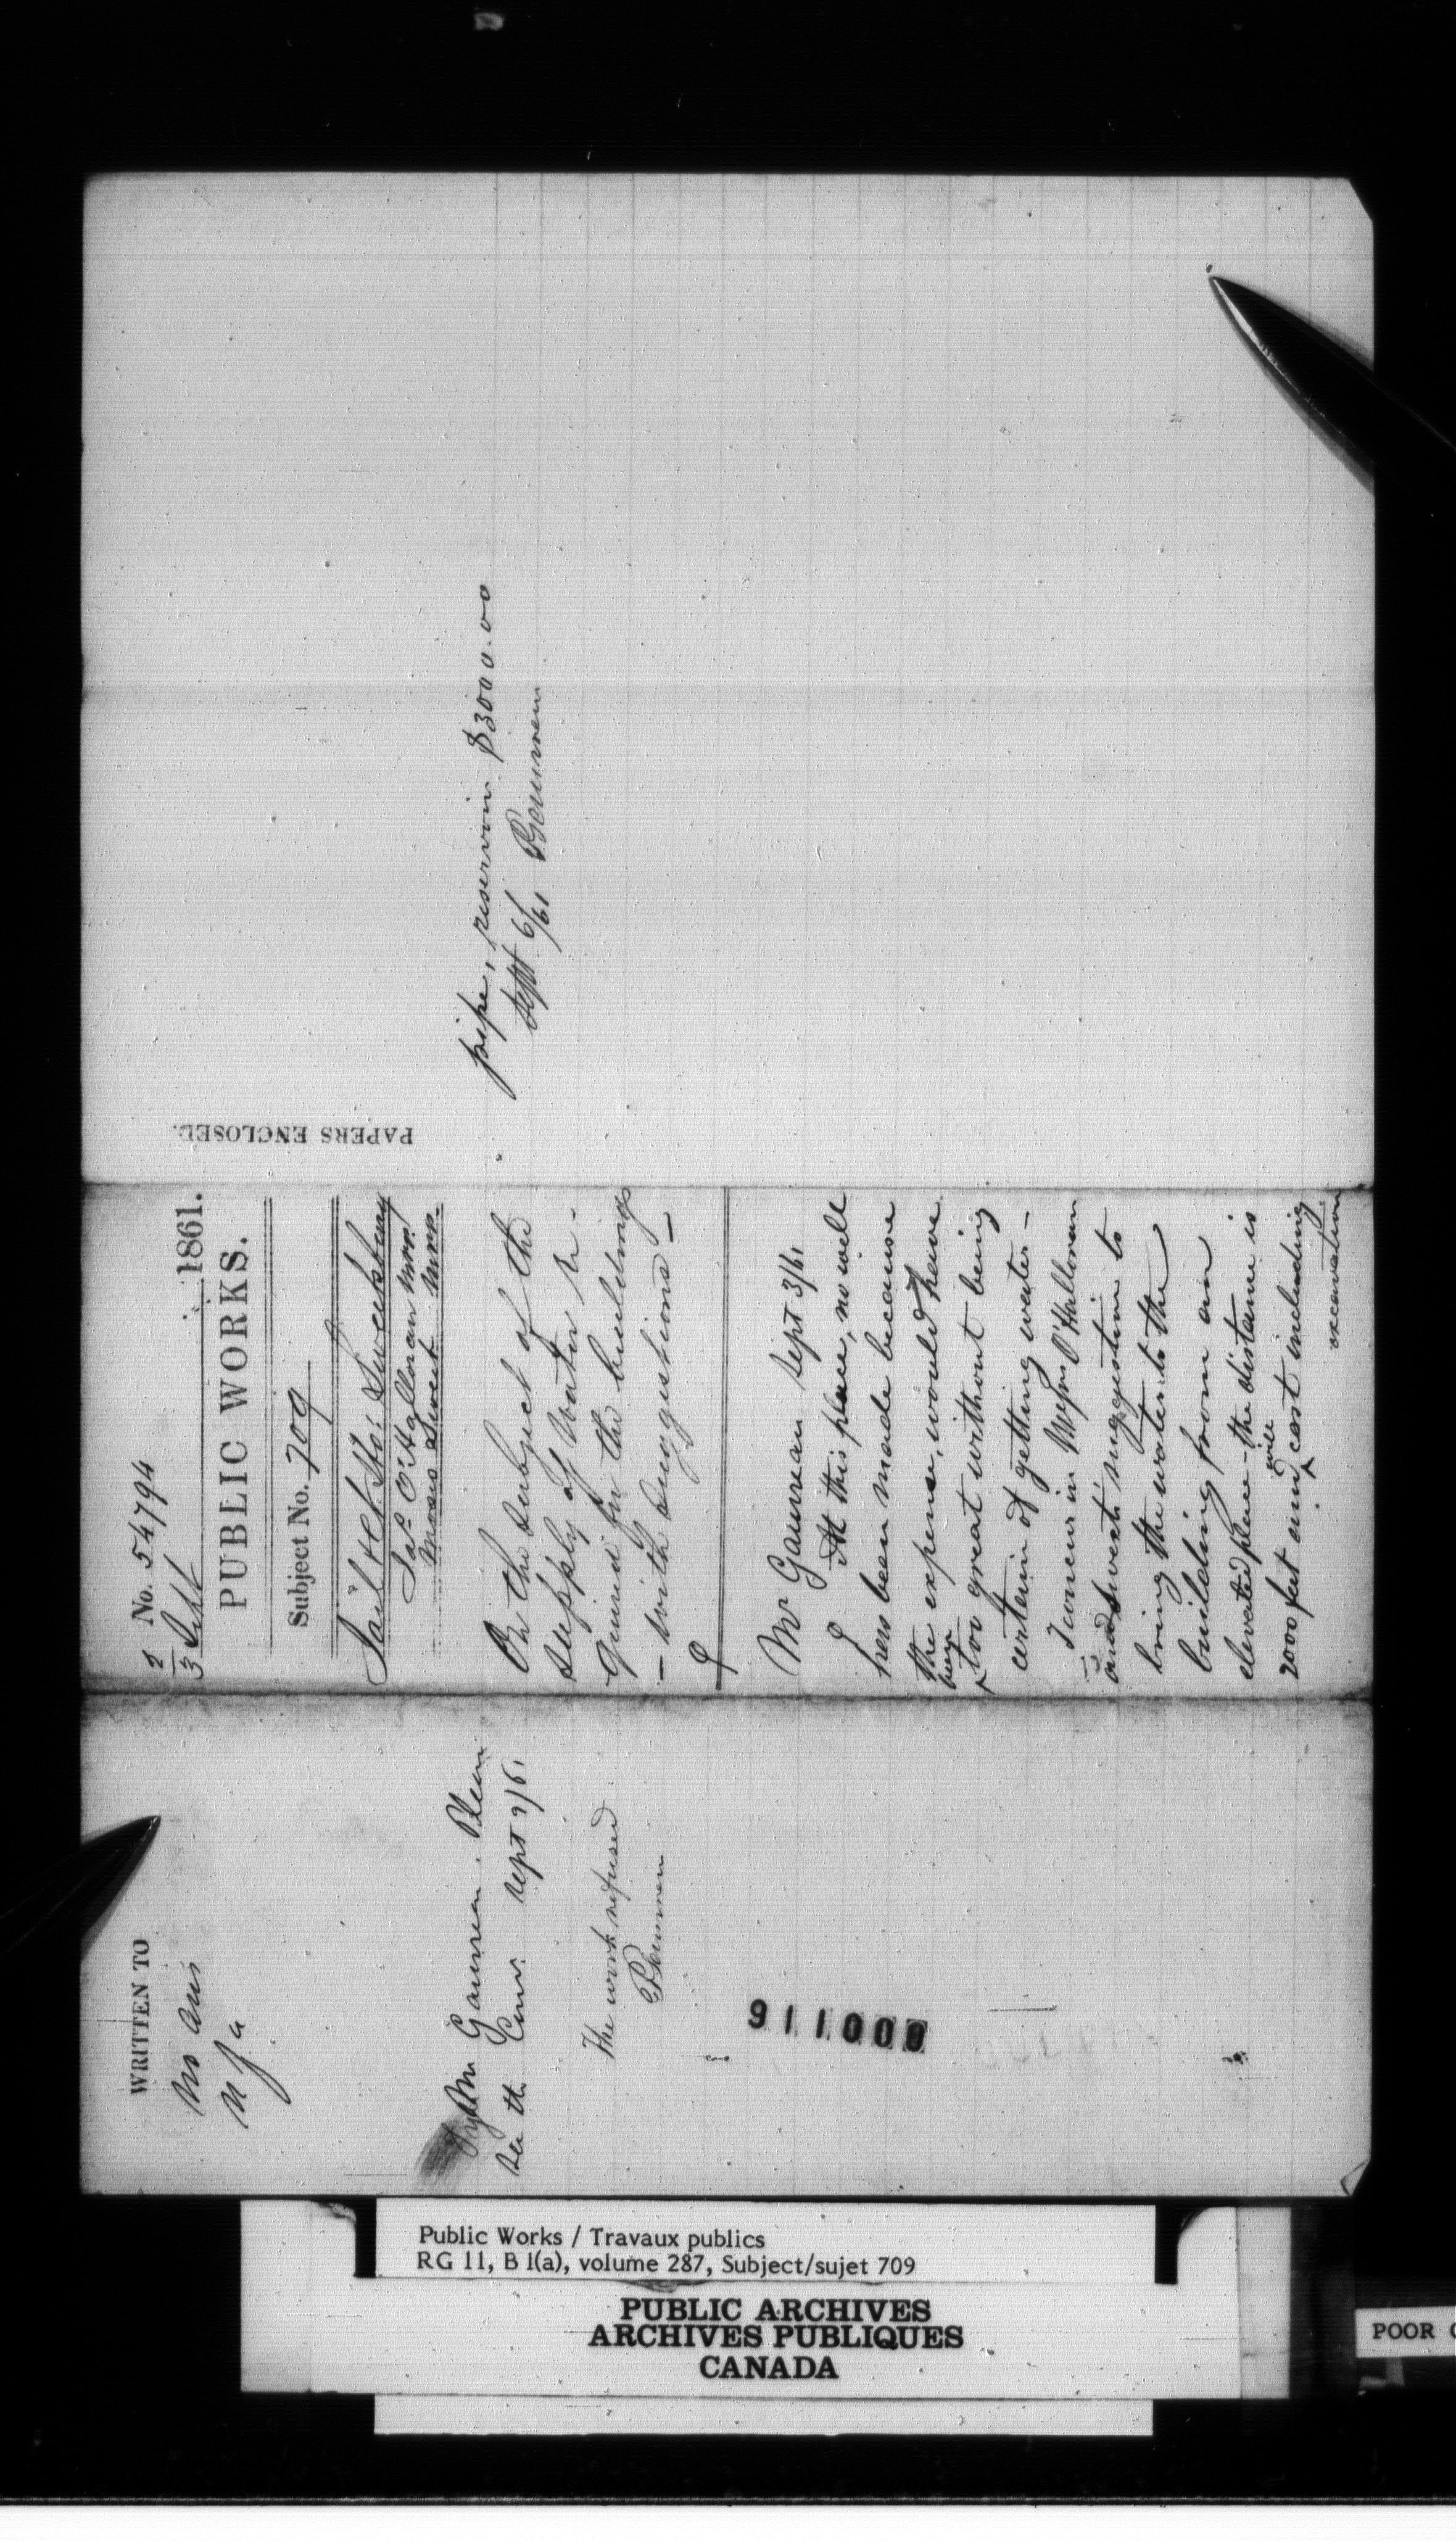 WRITTEN TO
No ans
Mr Gauvreau. Please
see the Comr. Sept 2/61
The work refused
911000
2/3 No. 54794
Sept 1861.
PUBLIC WORKS.
Subject No. 709
Jail & Ct. Ho: Sweetsburg
Jas. O'Halloran MPP.
Moses Sweet MPP.
On the subject of the
supply of water re-
quired for the buildings
– with suggestions –
Mr Gauvreau Sept 3/61
At this place, no well
has been made because
the expense, would have
been
too great without being
certain of getting water –
I concur in Messrs O'Halloran
and Sweet's suggestion to
bring the water to the
building from an
elevated place – the distance is
will
2000 feet and cost including
excavation
PAPERS ENCLOSED.
pipe, reservoir $3000.00
Sept 6/61
Public Works / Travaux publics
RG 11, B 1(a), volume 287, Subject/sujet 709
PUBLIC ARCHIVES
ARCHIVES PUBLIQUES
CANADA
POOR